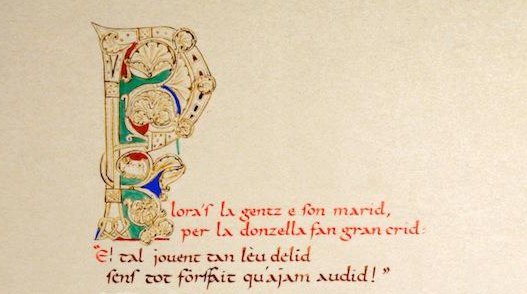 Plora's la gentz e son marid,
per la donzella fan gran crid:
"E! tal jouent tan lèu delid
sens tot fòrsfait qu'ajam audid!"